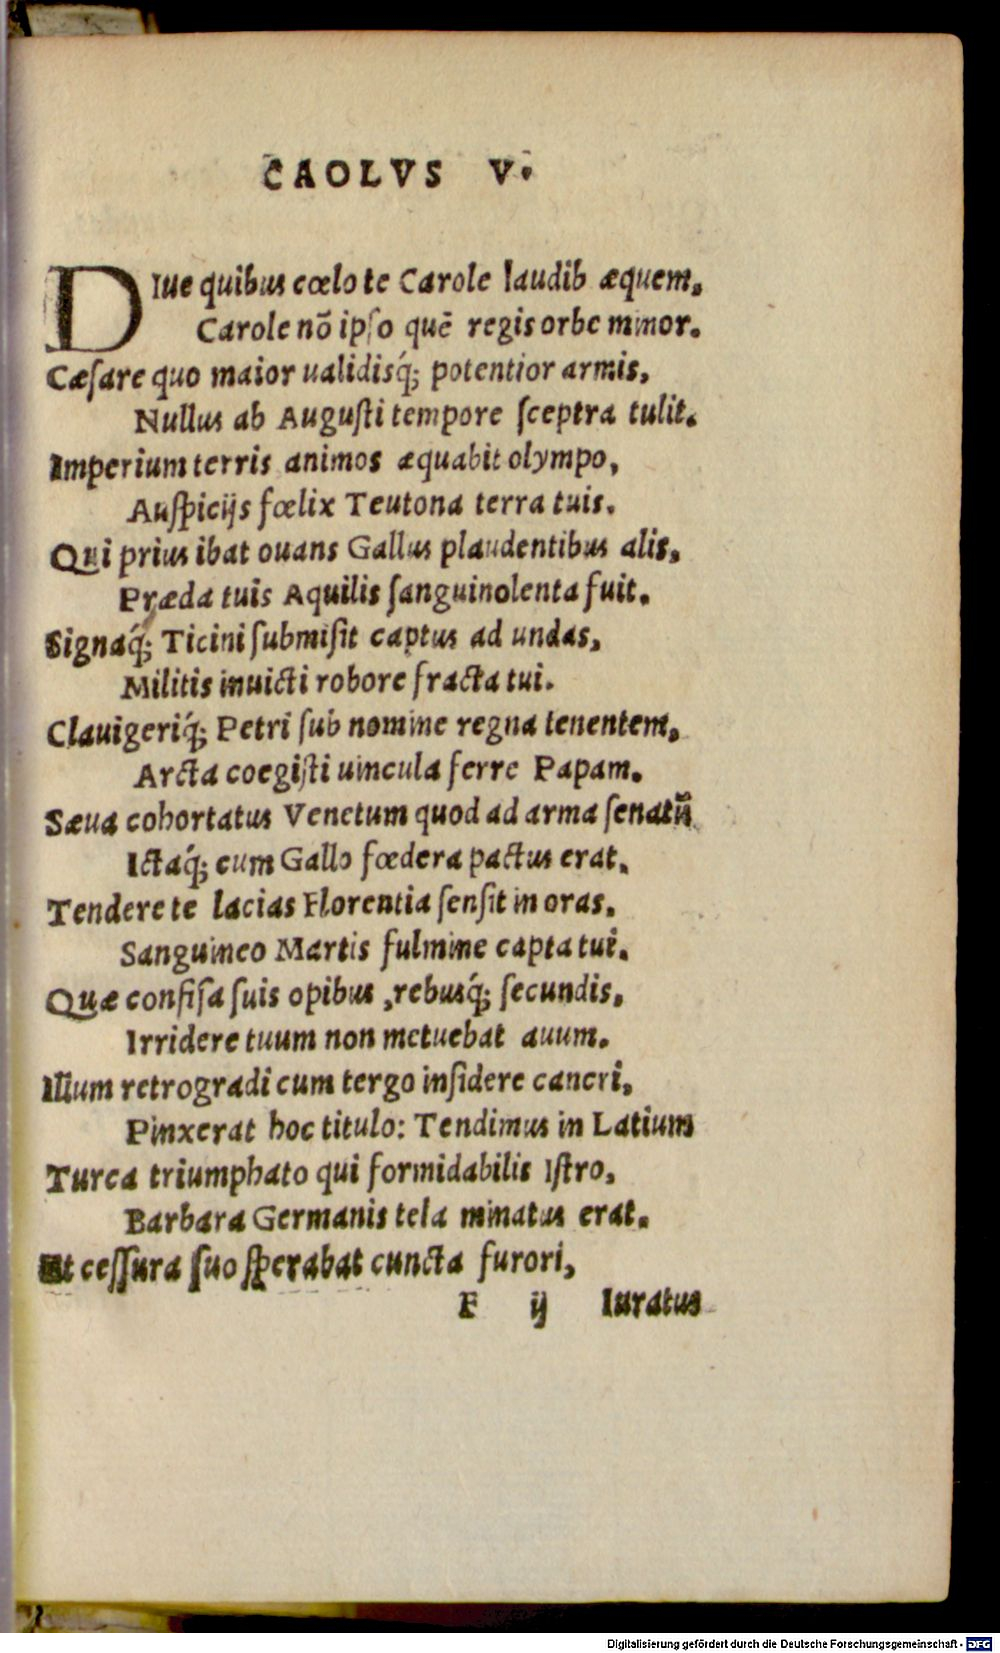 CAOLVS V.
DIue quibus cœlo te Carole laudib æquem,
Carole nō ipſo quē regis orbe minor.
Cæſare quo maior ualidisq́; potentior armis,
Nullus ab Auguſti tempore ſceptra tulit.
Imperium terris animos æquabit olympo,
Auſpicijs fœlix Teutona terra tuis.
Qui prius ibat ouans Gallus plaudentibus alis,
Præda tuis Aquilis ſanguinolenta fuit.
Signaq́; Ticini ſubmiſit captus ad undas,
Militis inuicti robore fracta tui.
Clauigeriq́; Petri ſub nomine regna tenentem,
Arcta coegiſti uincula ferre Papam.
Sæua cohortatus Venetum quod ad arma ſenatū
Ictaq́; cum Gallo fœdera pactus erat.
Tendere te lacias Florentia ſenſit in oras,
Sanguineo Martis fulmine capta tui.
Quæ confiſa ſuis opibus ,rebusq́; ſecundis,
Irridere tuum non metuebat auum.
Illum retrogradi cum tergo inſidere cancri,
Pinxerat hoc titulo: Tendimus in Latium
Turca triumphato qui formidabilis Iſtro,
Barbara Germanis tela minatus erat.
Et ceſſura ſuo ſperabat cuncta furori,
F ij Iuratus
Digitalisierung gefördert durch die Deutsche Forschungsgemeinschaft - DFG